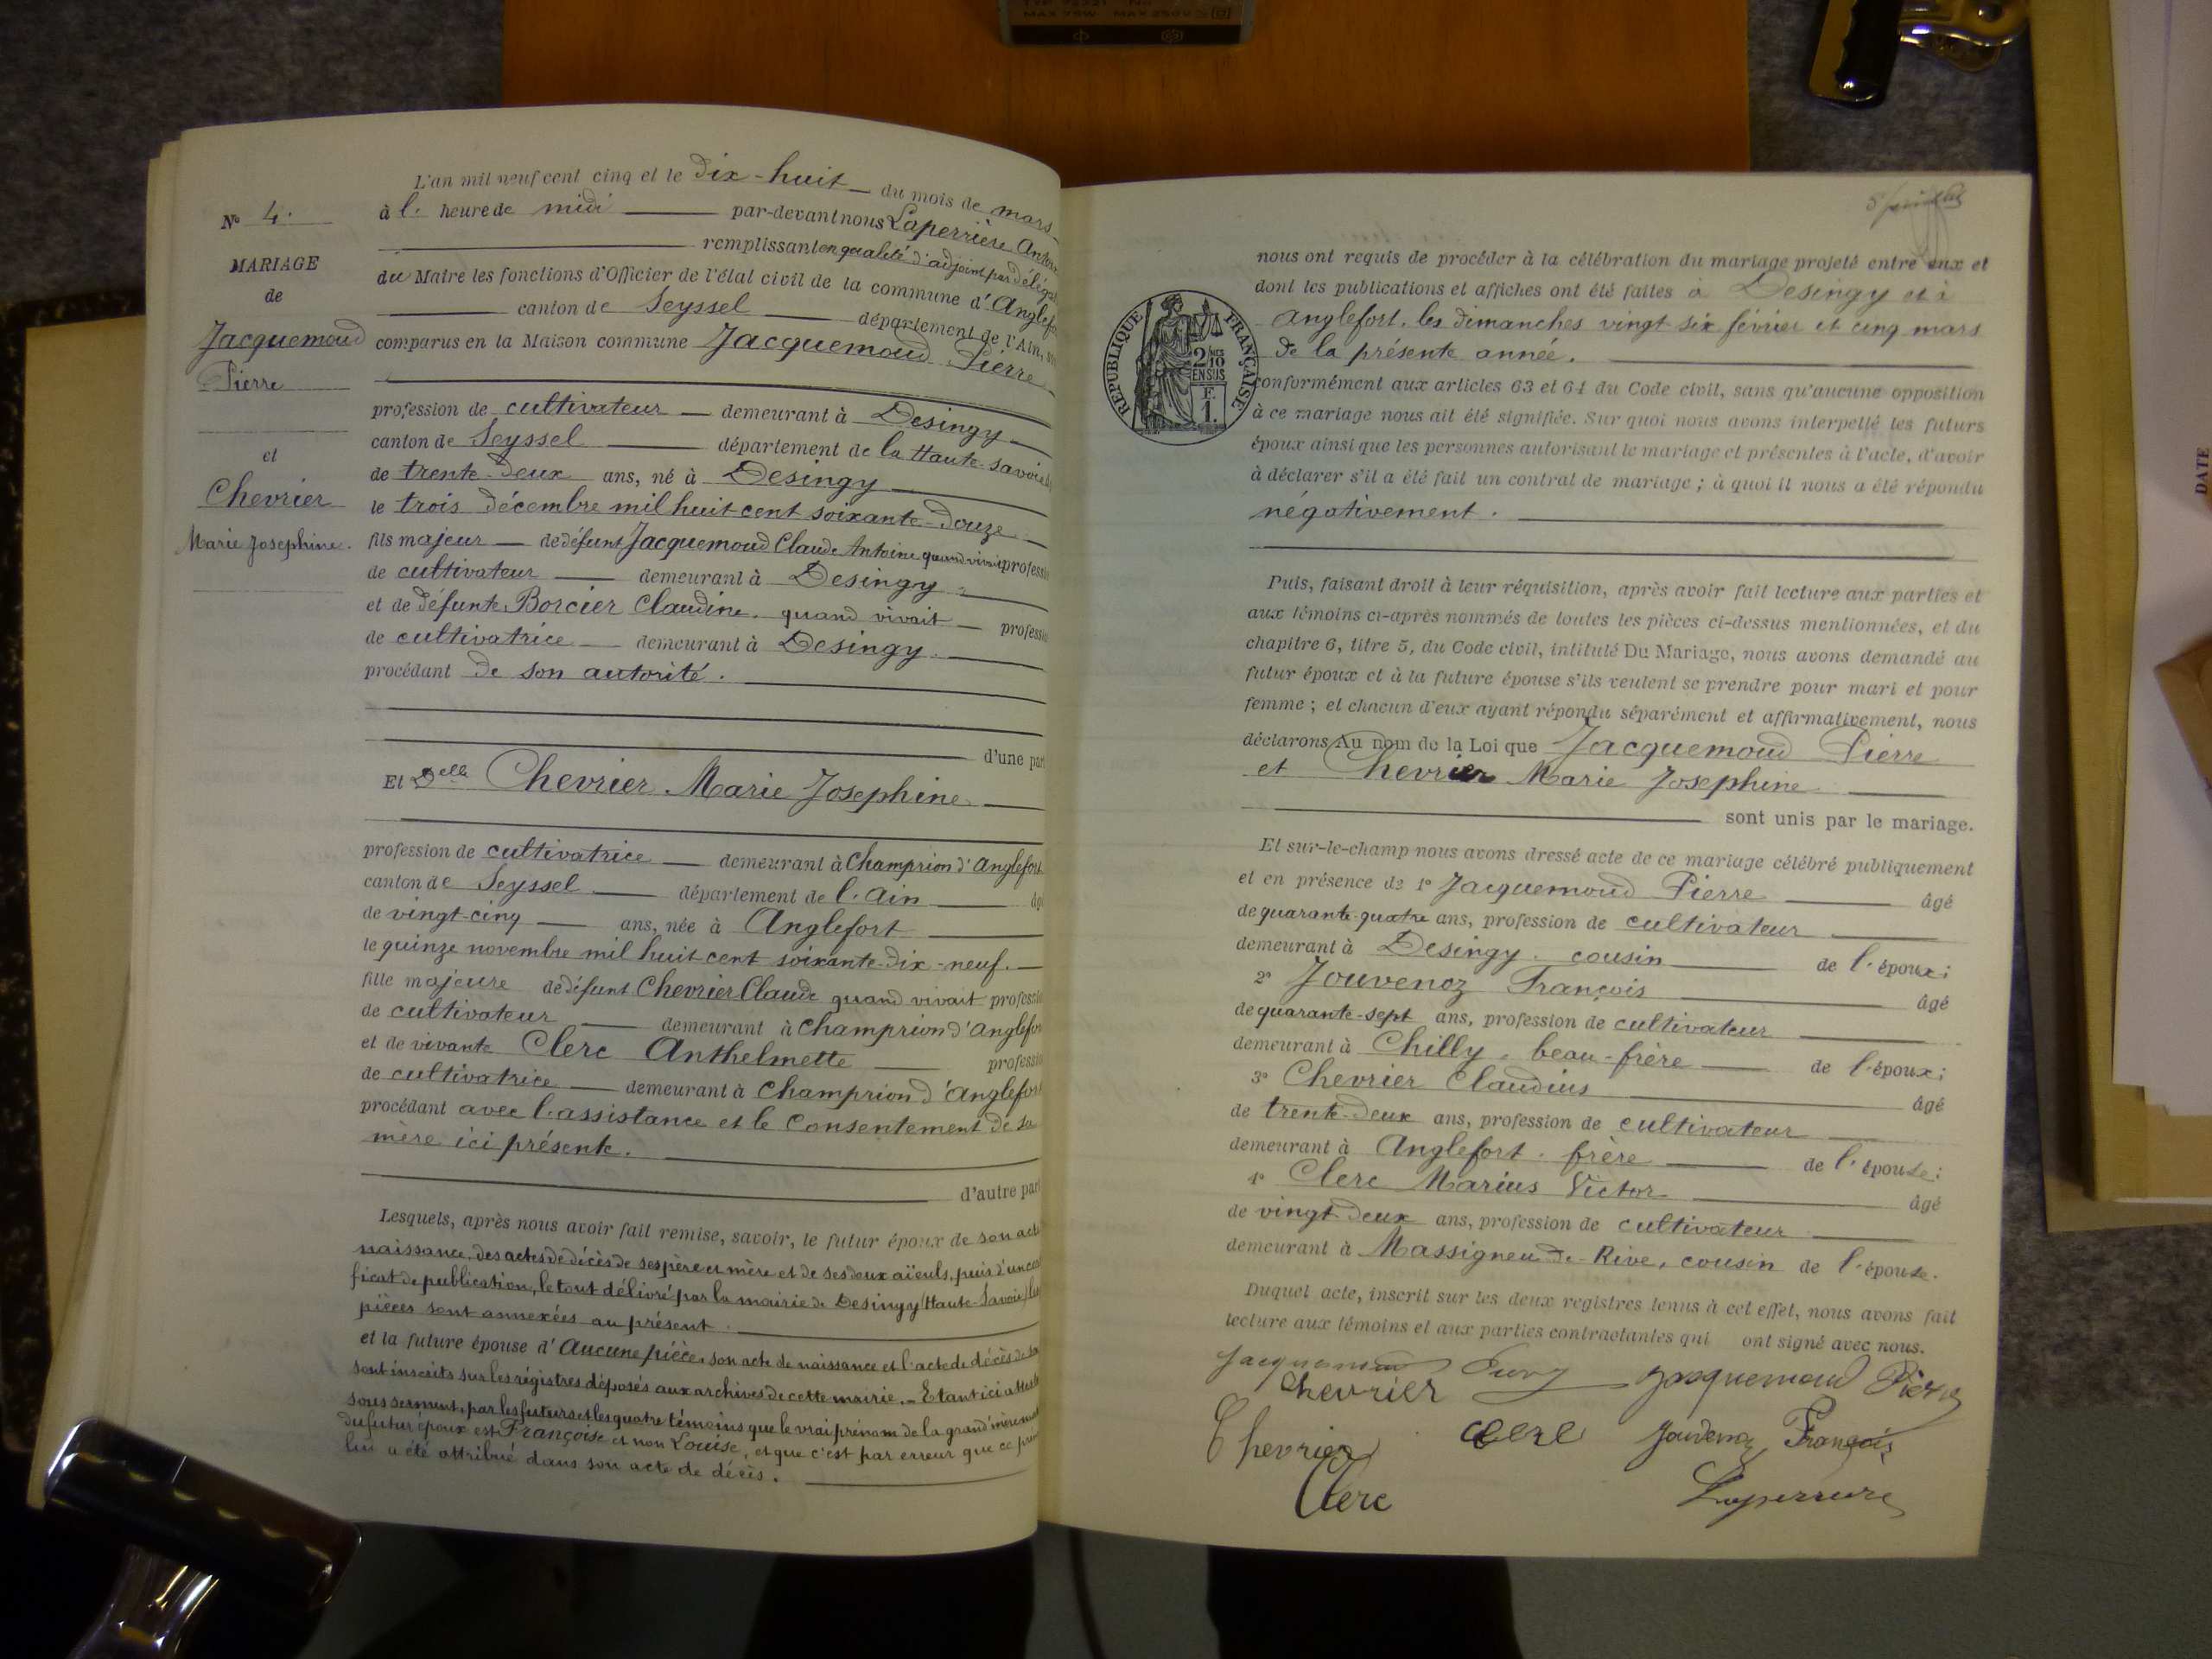 N° 4.
MARIAGE
de
Jacquemoud
Pierre
et
Chevrier
Marie Josephine.
L'an mil neuf cent cinq et le dix-huit du mois de mars
à l' heure de midi par-devant nous Laperrière
remplissant en qualité d'adjoint par
du Maire les fonctions d'Officier de l'état civil de la commune d'
canton de Seyssel département de l'Ain,
comparus en la Maison commune Jacquemoud Pierre
profession de cultivateur demeurant à Desingy
canton de Seyssel département de la Haute-Savoie
de trente-deux ans, né à Desingy
le trois décembre mil huit cent soixante-douze
fils majeur de défunt Jacquemoud Claude Antoine quand vivait
de cultivateur demeurant à Desingy
et de défunte Borcier Claudine. quand vivait
de cultivatrice demeurant à Desingy.
procédant de son autorité.
d'une
Et Delle Chevrier Marie Josephine
profession de cultivatrice demeurant à Champrion d'
canton de Seyssel département de l'Ain
de vingt-cinq ans, née à Anglefort
le quinze novembre mil huit cent soixante-dix-neuf.
fille majeure de défunt Chevrier Claude quand vivait
de cultivateur demeurant à Champrion d'
et de vivante Clerc Anthelmette
de cultivatrice demeurant à Champrion d'
procédant avec l'assistance et le Consentement de sa
mère ici présente.
d'autre
Lesquels, après nous avoir fait remise, savoir, le futur époux de son
naissance, des actes de décès de ses père et mère et de ses deux aïeuls, puis d'un
ficat de publication, le tout délivré par la mairie de Desingy (Haute-Savoie)
pièces sont annexées au présent.
et la future épouse d'Aucune pièce, son acte de naissance et l'acte de décès de
sont inscrits sur les régistres déposés aux archives de cette mairie. - Etant ici
sous serment, par les futurs et les quatre témoins que le vrai prénom de la grand'mère
du futur époux est Françoise et non Louise, et que c'est par erreur que ce
lui a été attribué dans son acte de décès.
RÉPUBLIQUE FRANÇAISE
2/10
EN SUS
F.
1.
nous ont requis de procéder à la célébration du mariage projeté entre eux et
dont les publications et affiches ont été faites à Desingy et à
Anglefort, les dimanches vingt six février et cinq mars
de la présente année.
conformément aux articles 63 et 64 du Code civil, sans qu'aucune opposition
à ce mariage nous ait été signifiée. Sur quoi nous avons interpellé les futurs
époux ainsi que les personnes autorisant le mariage et présentes à l'acte, d'avoir
à déclarer s'il a été fait un contrat de mariage ; à quoi il nous a été répondu
négativement.
Puis, faisant droit à leur réquisition, après avoir fait lecture aux parties et
aux témoins ci-après nommés de toutes les pièces ci-dessus mentionnées, et du
chapitre 6, titre 5, du Code civil, intitulé Du Mariage, nous avons demandé au
futur époux et à la future épouse s'ils veulent se prendre pour mari et pour
femme ; et chacun d'eux ayant répondu séparément et affirmativement, nous
déclarons Au nom de la Loi que Jacquemoud Pierre
et Chevrier Marie Josephine
sont unis par le mariage.
Et sur-le-champ nous avons dressé acte de ce mariage célébré publiquement
et en présence de 1° Jacquemoud Pierre âgé
de quarante-quatre ans, profession de cultivateur
demeurant à Desingy. cousin de l'époux;
2° Jouvenoz François âgé
de quarante-sept ans, profession de cultivateur
demeurant à Chilly, beau-frère de l'époux;
3° Chevrier Claudius âgé
de trente-deux ans, profession de cultivateur
demeurant à Anglefort. frère de l'épouse;
4° Clerc Marius Victor âgé
de vingt-deux ans, profession de cultivateur
demeurant à Massigneu-de-Rive, cousin de l'épouse.
Duquel acte, inscrit sur les deux registres tenus à cet effet, nous avons fait
lecture aux témoins et aux parties contractantes qui ont signé avec nous.
Jacquemoud Jacquemoud Pierre
Chevrier
Chevrier Clerc Jouvenoz François
Clerc Laperrière
DATE